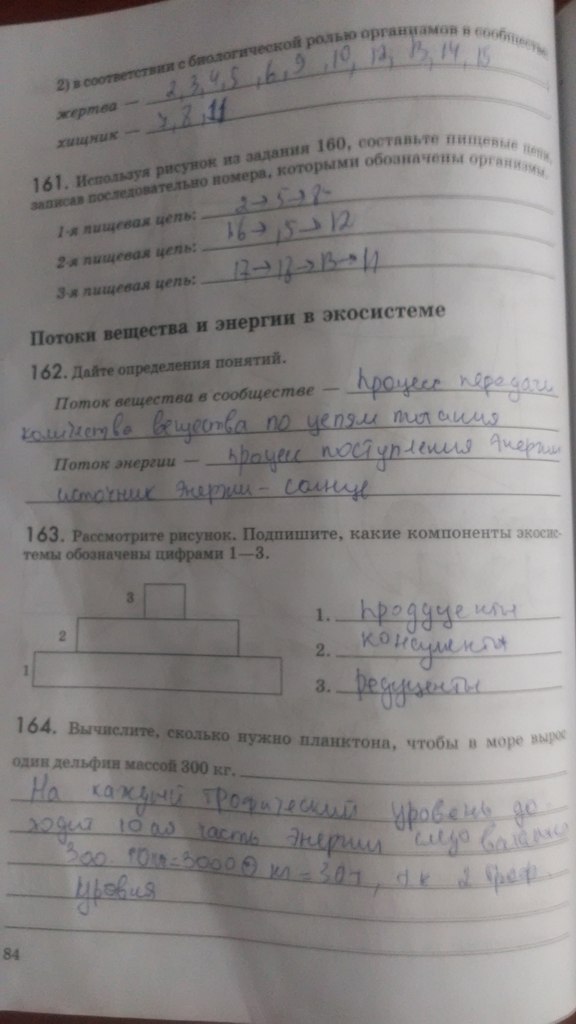 2) в соответствии с биологической ролью организмов в сообществе
жертва — 2, 3, 4, 5, 6, 9, 10, 12, 13, 14, 15
хищник — 7, 8, 11
161. Используя рисунок из задания 160, составьте пищевые цепи,
записав последовательно номера, которыми обозначены организмы.
1-я пищевая цепь: 2→5→8
2-я пищевая цепь: 16→15→12
3-я пищевая цепь: →13→11
Потоки вещества и энергии в экосистеме
162. Дайте определения понятий.
Поток вещества в сообществе — процесс передачи
количества вещества по цепям питания
Поток энергии — процесс поступления энергии
источник энергии - солнце
163. Рассмотрите рисунок. Подпишите, какие компоненты экосис-
темы обозначены цифрами 1—3.
3
2
1
1. продуценты
2. консументы
3. редуценты
164. Вычислите, сколько нужно планктона, чтобы в море вырос
один дельфин массой 300 кг.
На каждый трофический уровень до-
ходит 10-ая часть энергии следовательно
300 = 30000 кг = 30 т, т к 2 троф.
уровня
84